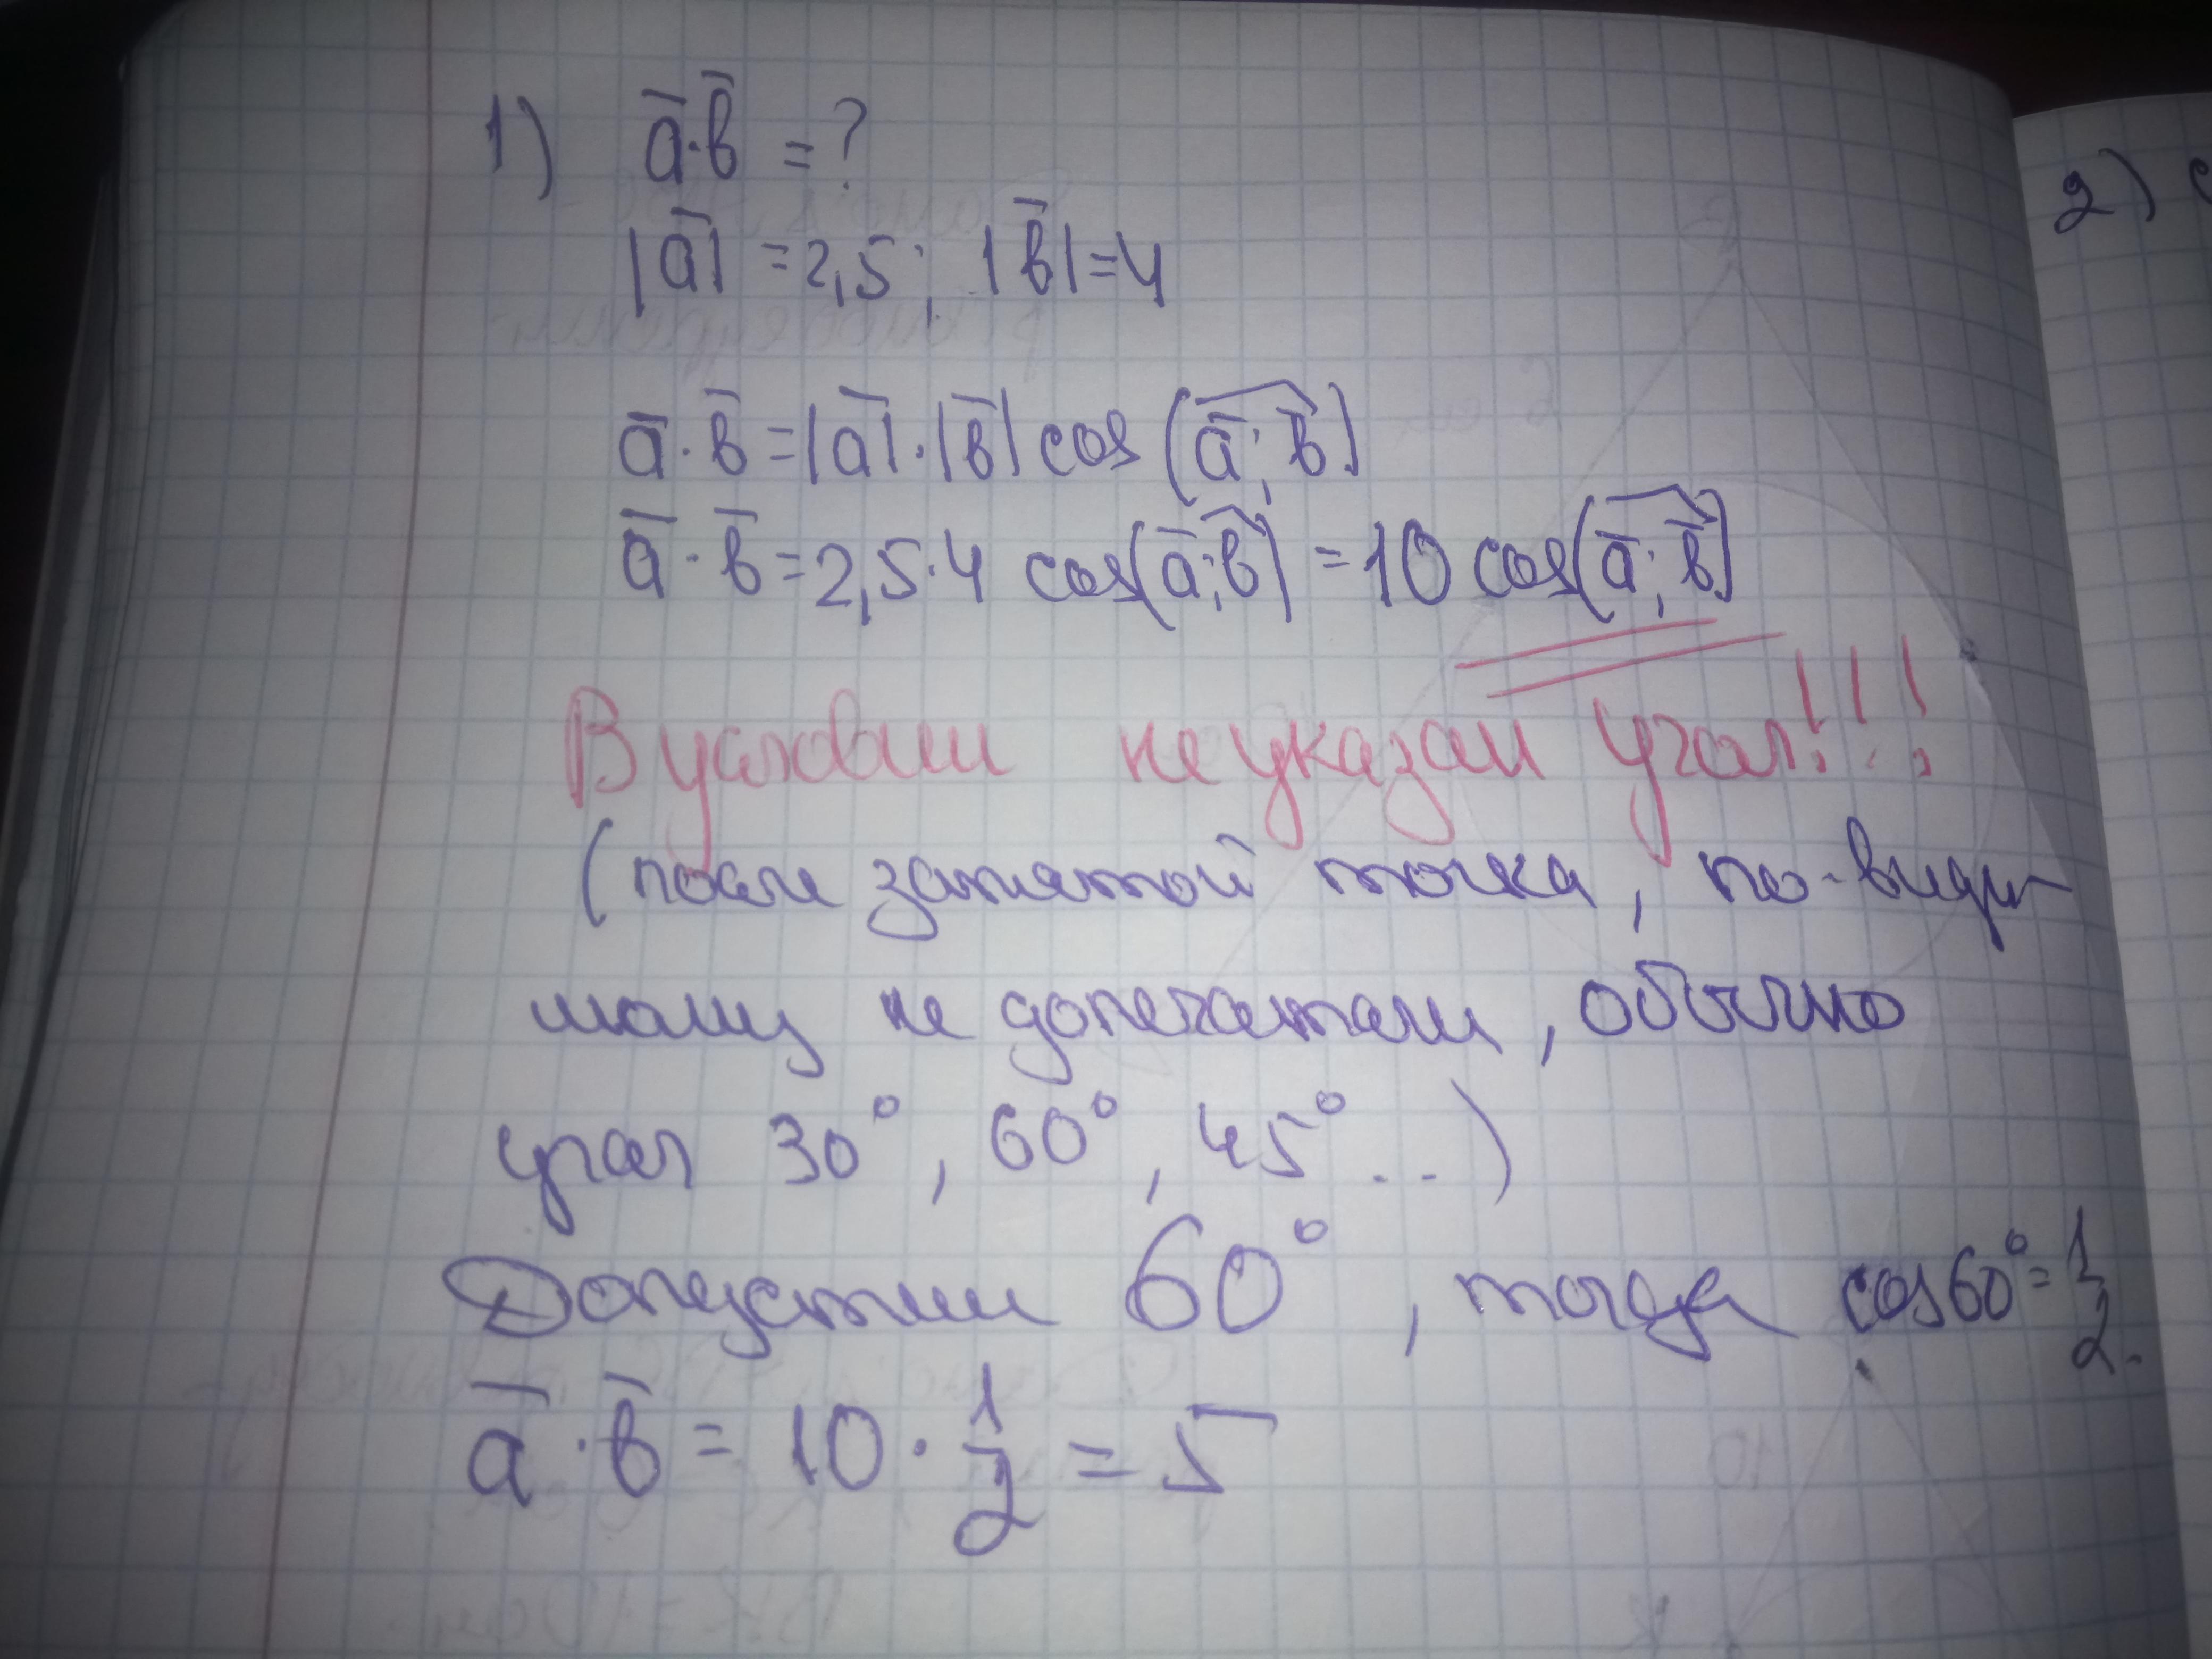 1) a̅·b̅ = ?
|a̅| = 2,5; |b̅| = 4
a̅·b̅ = |a̅|·|b̅| cos(a̅; b̅)
a̅·b̅ = 2,5·4 cos(a̅; b̅) = 10 cos(a̅; b̅)
В условии не указан угол!!!
(после запятой точка, по-види-
мому не допечатали, обычно
угол 30°, 60°, 45°...)
Допустим 60°, тогда cos60° = 1/2.
a̅·b̅ = 10·1/2 = 5
2)